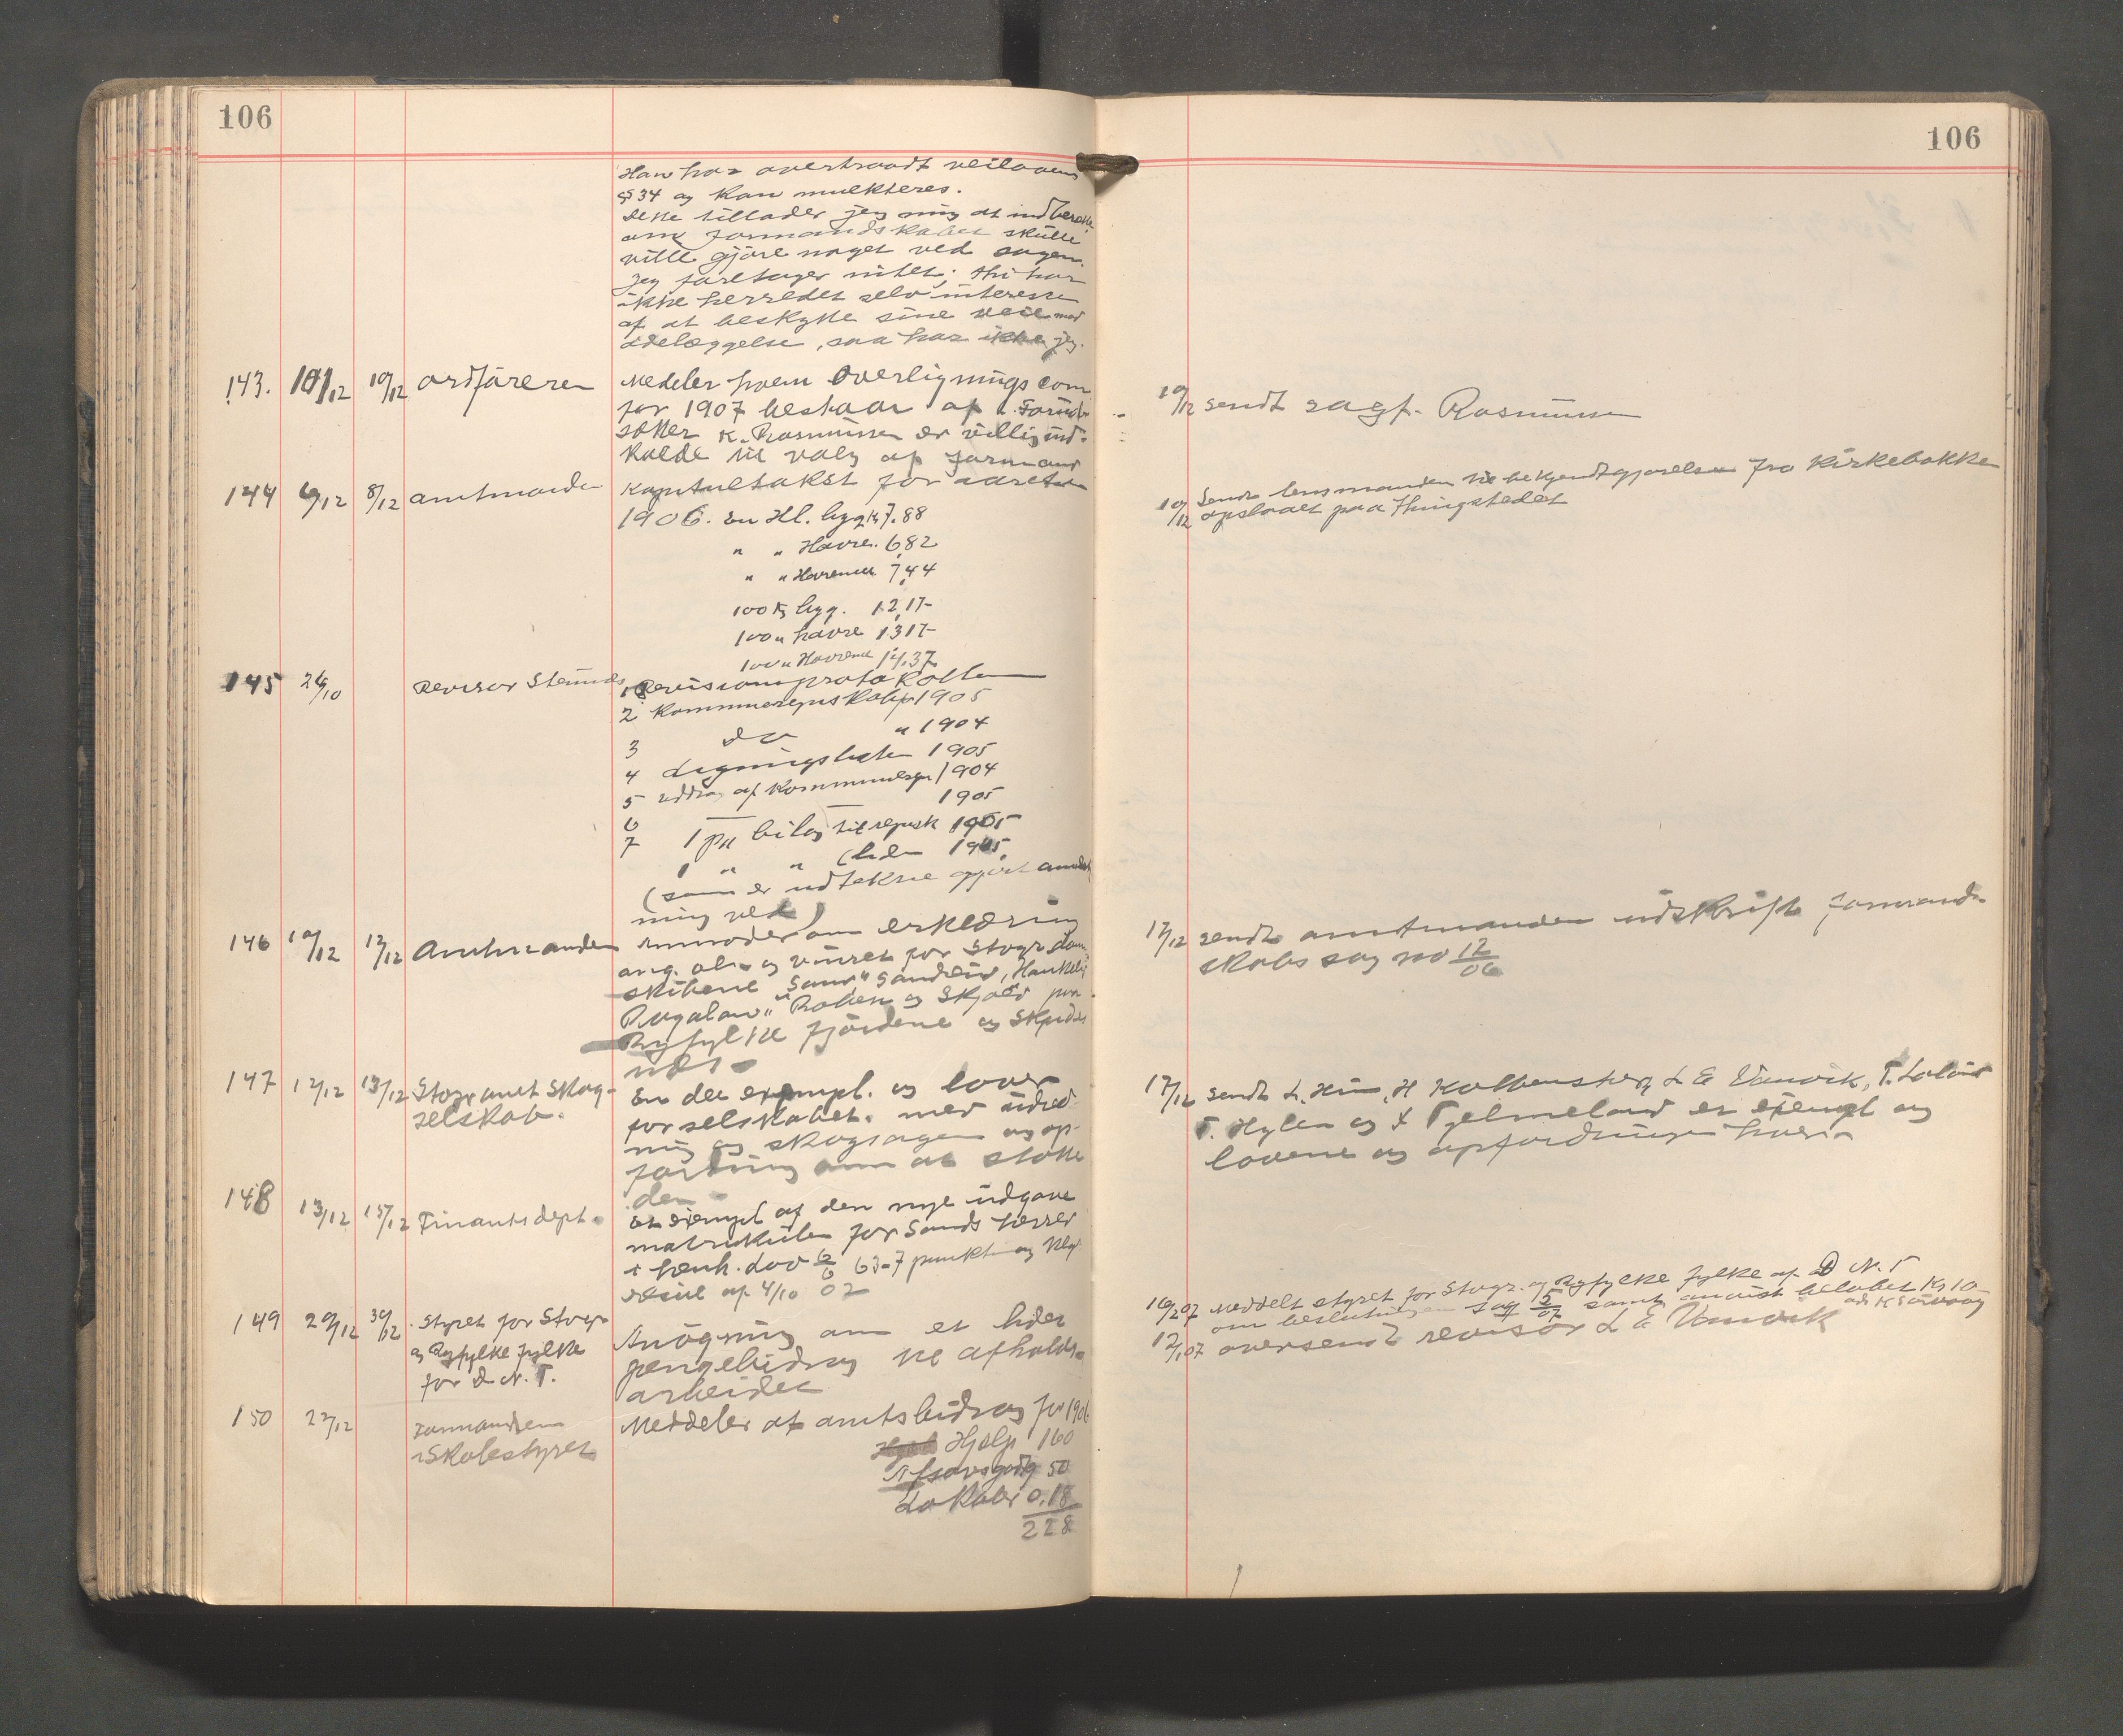 106
Han har overtraadt veilovens
§ 34 og kan mulkteres.
Dette tillader jeg mig at indberette
om formandskabet skulle
ville gjøre noget ved sagen.
Jeg foretager intet; thi har
ikke herredet selv interesse
af at beskytte sine veie mod
ødelæggelse, saa har ikke jeg.
143. 10/12 10/12 ordføreren
Medeler hvem Overligningscom
for 1907 bestaar af
sætter K. Rasmussen er villig ind-
kalde til valg af formand
144 6/12 8/12 amtmanden
Kapitultakst for aaret
1906. En Hl. byg kr 7.88
" " Havre. 6,82
" " Havremel 7,44
100 kg byg. 12,17
100 " havre 13,17
100 " Havremel 14,37
145 24/10 Revisor
1 Revisionsprotokollen
2 Kommuneregnskab 1905
3 do " 1904
4 Ligningslisten 1905
5 uddrag af kommuneregn 1904
6 1905
7 1 pk bilag til regnsk 1905
1 " " 1905
(som er udtekne gjort anmerk
ning ved)
146 10/12 12/12 Amtmanden
Anmoder om erklæring
ang. øl og vinret for Stavgr dam
skibene "Sand" Sandeid, Haukeli
Rogaland" Robert og Skjold paa
Ryfylke fjordene og
147 12/12 13/12 Stavgr amt Skog-
selskab.
En del exempl. og love
for selskabet. med udred
ning og skogsagen og op-
fordring om at støtte
den
148 13/12 15/12 Finantsdept.
et exempl af den nye udgave
matrikulen for Sands herred
i henh. Lov 6/6 63-7 punkt og Kgl
af 4/10 02
149 29/12 30/12 Styret for Stavgr
og Ryfylke fylke
for D. N. T.
Ansøgning om et lidet
pengebidrag til afholds-
arbeidet
150 22/12 Formanden
i Skolestyret
Meddeler at amtsbidrag for 1906
Hjelp 160
50
Lokaler 0.18
228
106
10/12 sendt sagf. Rasmussen
10/12 Sendt lensmanden til bekjendtgjørelse fra Kirkebakke
opslaaet paa thingstedet
17/12 sendt amtmanden udskrift formand-
skabs sag no 12/06
17/12 sendt L. Hiim, H Kolbenstveg, L E Vanvik, T.
T. Hylen og Tjelmeland et exempl og
lovene og opfordringen hver
16/2 07 Meddelt styret for Stavgr. og Ryfylke fylke af D N. T
om beslutningen sag 5/07 samt anvist beløbet Kr 10
12/1 07 oversendt revisor L E Vanvik